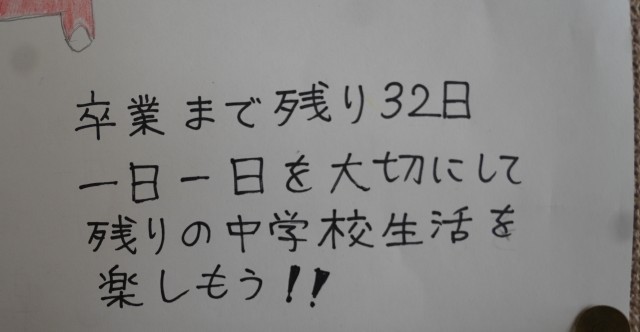 卒業まで残り32日
一日一日を大切にして
残りの中学校生活を
楽しもう!!